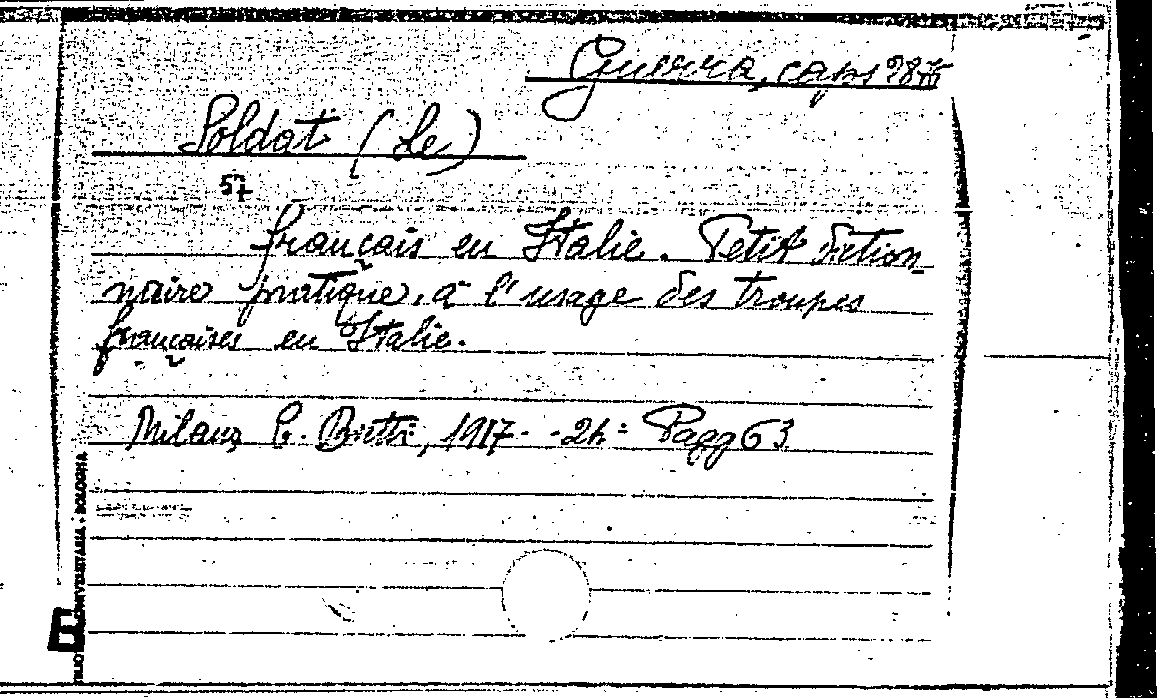 Guerra, caps 2876
Soldat (Le)
57
français en Italie. Petit diction-
naire pratique, à l'usage des troupes
françaises en Italie.
Milano, Bietti, 1917 - 24° Pagg 63
UNIVERSITARIA - BOLOGNA